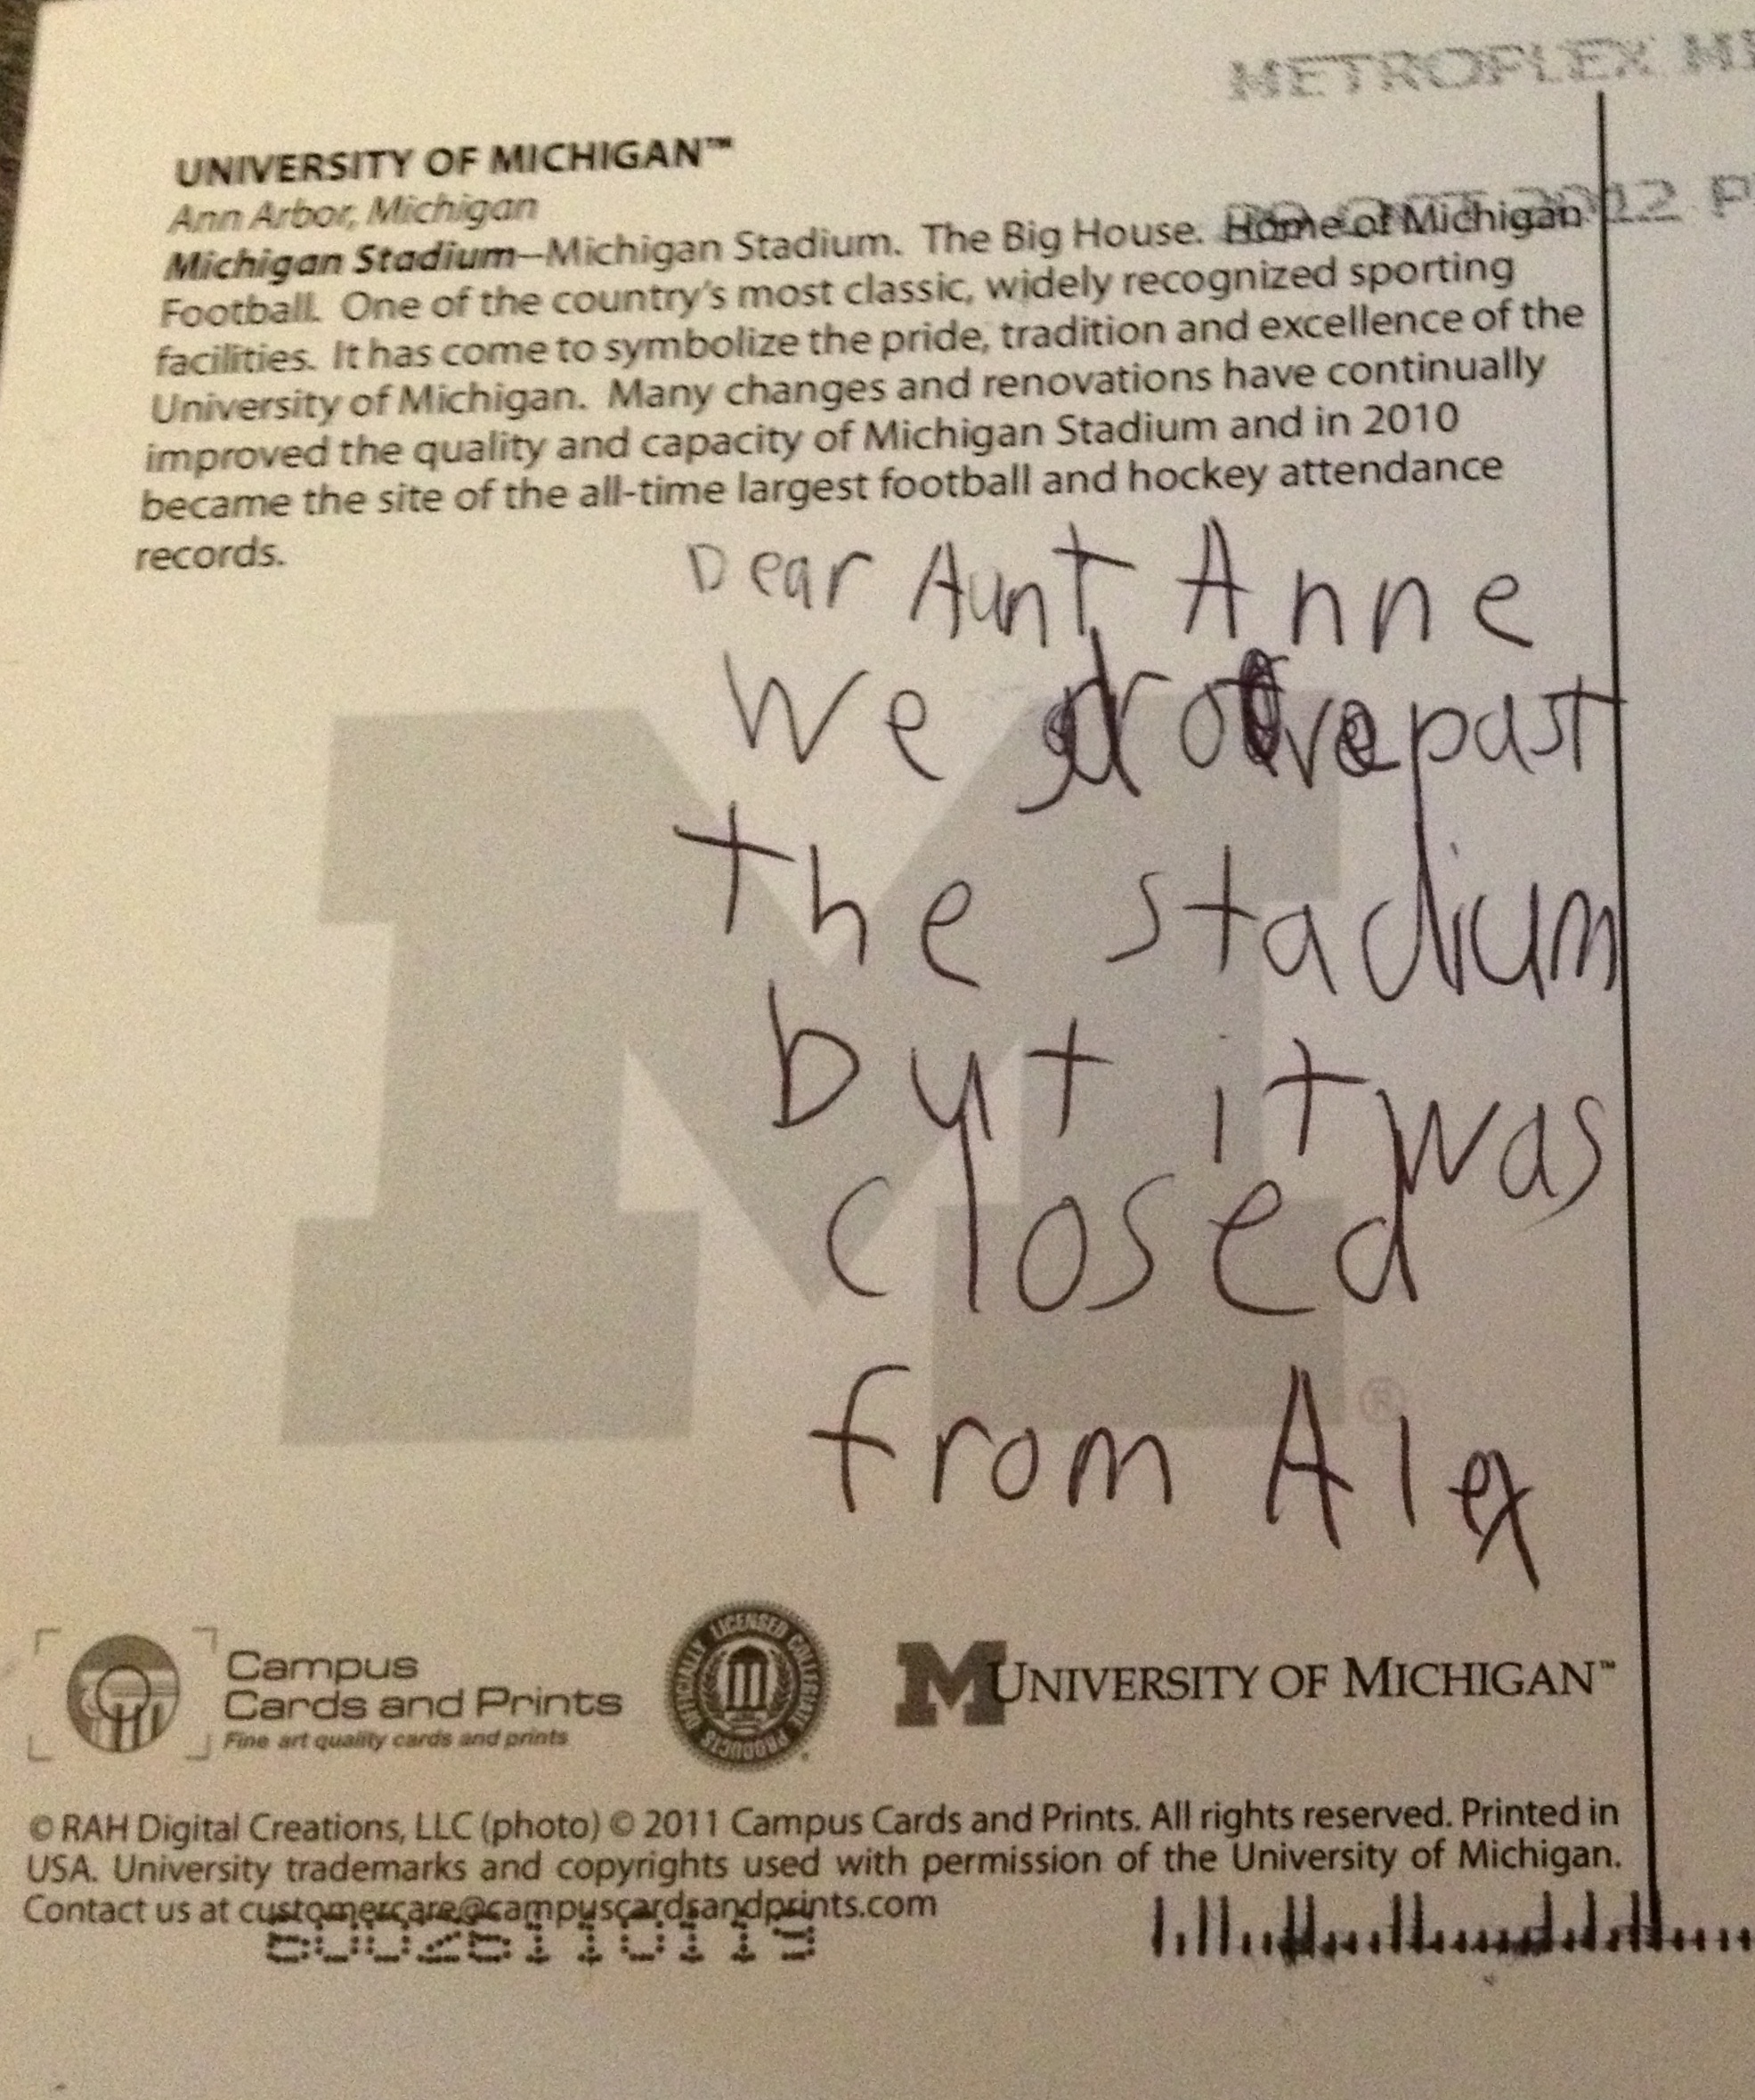 METROPLEX MI
OCT 2012 P
UNIVERSITY OF MICHIGAN™
Ann Arbor, Michigan
Michigan Stadium—Michigan Stadium. The Big House. Home of Michigan
Football. One of the country's most classic, widely recognized sporting
facilities. It has come to symbolize the pride, tradition and excellence of the
University of Michigan. Many changes and renovations have continually
improved the quality and capacity of Michigan Stadium and in 2010
became the site of the all-time largest football and hockey attendance
records.
Dear Aunt Anne
We drove past
the stadium
but it was
closed
from Alex
M
®
Campus
Cards and Prints
Fine art quality cards and prints
OFFICIALLY LICENSED COLLEGIATE PRODUCTS
M UNIVERSITY OF MICHIGAN™
© RAH Digital Creations, LLC (photo) © 2011 Campus Cards and Prints. All rights reserved. Printed in
USA. University trademarks and copyrights used with permission of the University of Michigan.
Contact us at customercare@campuscardsandprints.com